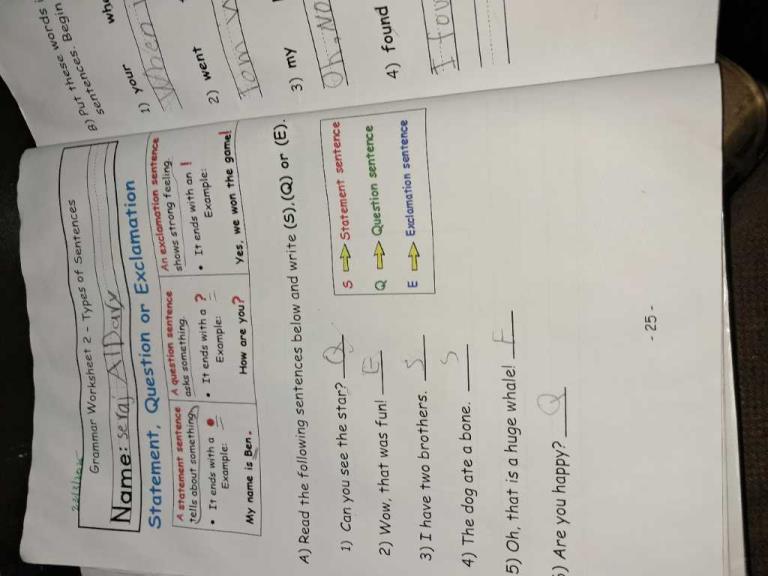 Grammar Worksheet 2 - Types of Sentences
Name: seraj AlDary
Statement, Question or Exclamation
A statement sentence tells about something.
• It ends with a ●
Example:
My name is Ben.
A question sentence asks something.
• It ends with a ?
Example:
How are you?
An exclamation sentence shows strong feeling.
• It ends with an !
Example:
Yes, we won the game!
A) Read the following sentences below and write (S),(Q) or (E).
S Statement sentence
Q Question sentence
E Exclamation sentence
1) Can you see the star? Q
2) Wow, that was fun! E
3) I have two brothers. S
4) The dog ate a bone. S
5) Oh, that is a huge whale! E
6) Are you happy? Q
- 25 -
B) Put these words i
sentences. Begin
whe
1) your
When
2) went
Tom w
3) my
Oh, no
4) found
I fou